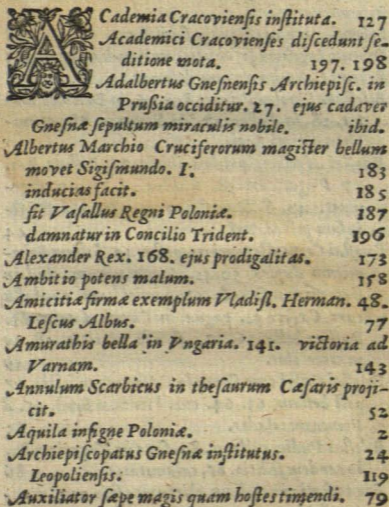 ACademia Cracoviensis instituta. 127
Academici Cracovienses discedunt se-
ditione mota. 197. 198
Adalbertus Gnesnensis Archiepisc. in
Prußia occiditur. 27. ejus cadaver
Gnesnæ sepultum miraculis nobile. ibid.
Albertus Marchio Cruciferorum magister bellum
movet Sigismundo. I. 183
inducias facit. 185
fit Vasallus Regni Poloniæ. 187
damnatur in Concilio Trident. 196
Alexander Rex. 168. ejus prodigalitas. 173
Ambitio potens malum. 158
Amicitiæ firmæ exemplum Vladisl. Herman. 48.
Lescus Albus. 77
Amurathis bella in Vngaria. 141. victoria ad
Varnam. 143
Annulum Scarbicus in thesaurum Cæsaris proji-
cit. 52
Aquila insigne Poloniæ. 2
Archiepiscopatus Gnesnæ institutus. 24
Leopoliensis. 119
Auxiliator sæpe magis quam hostes timendi. 79